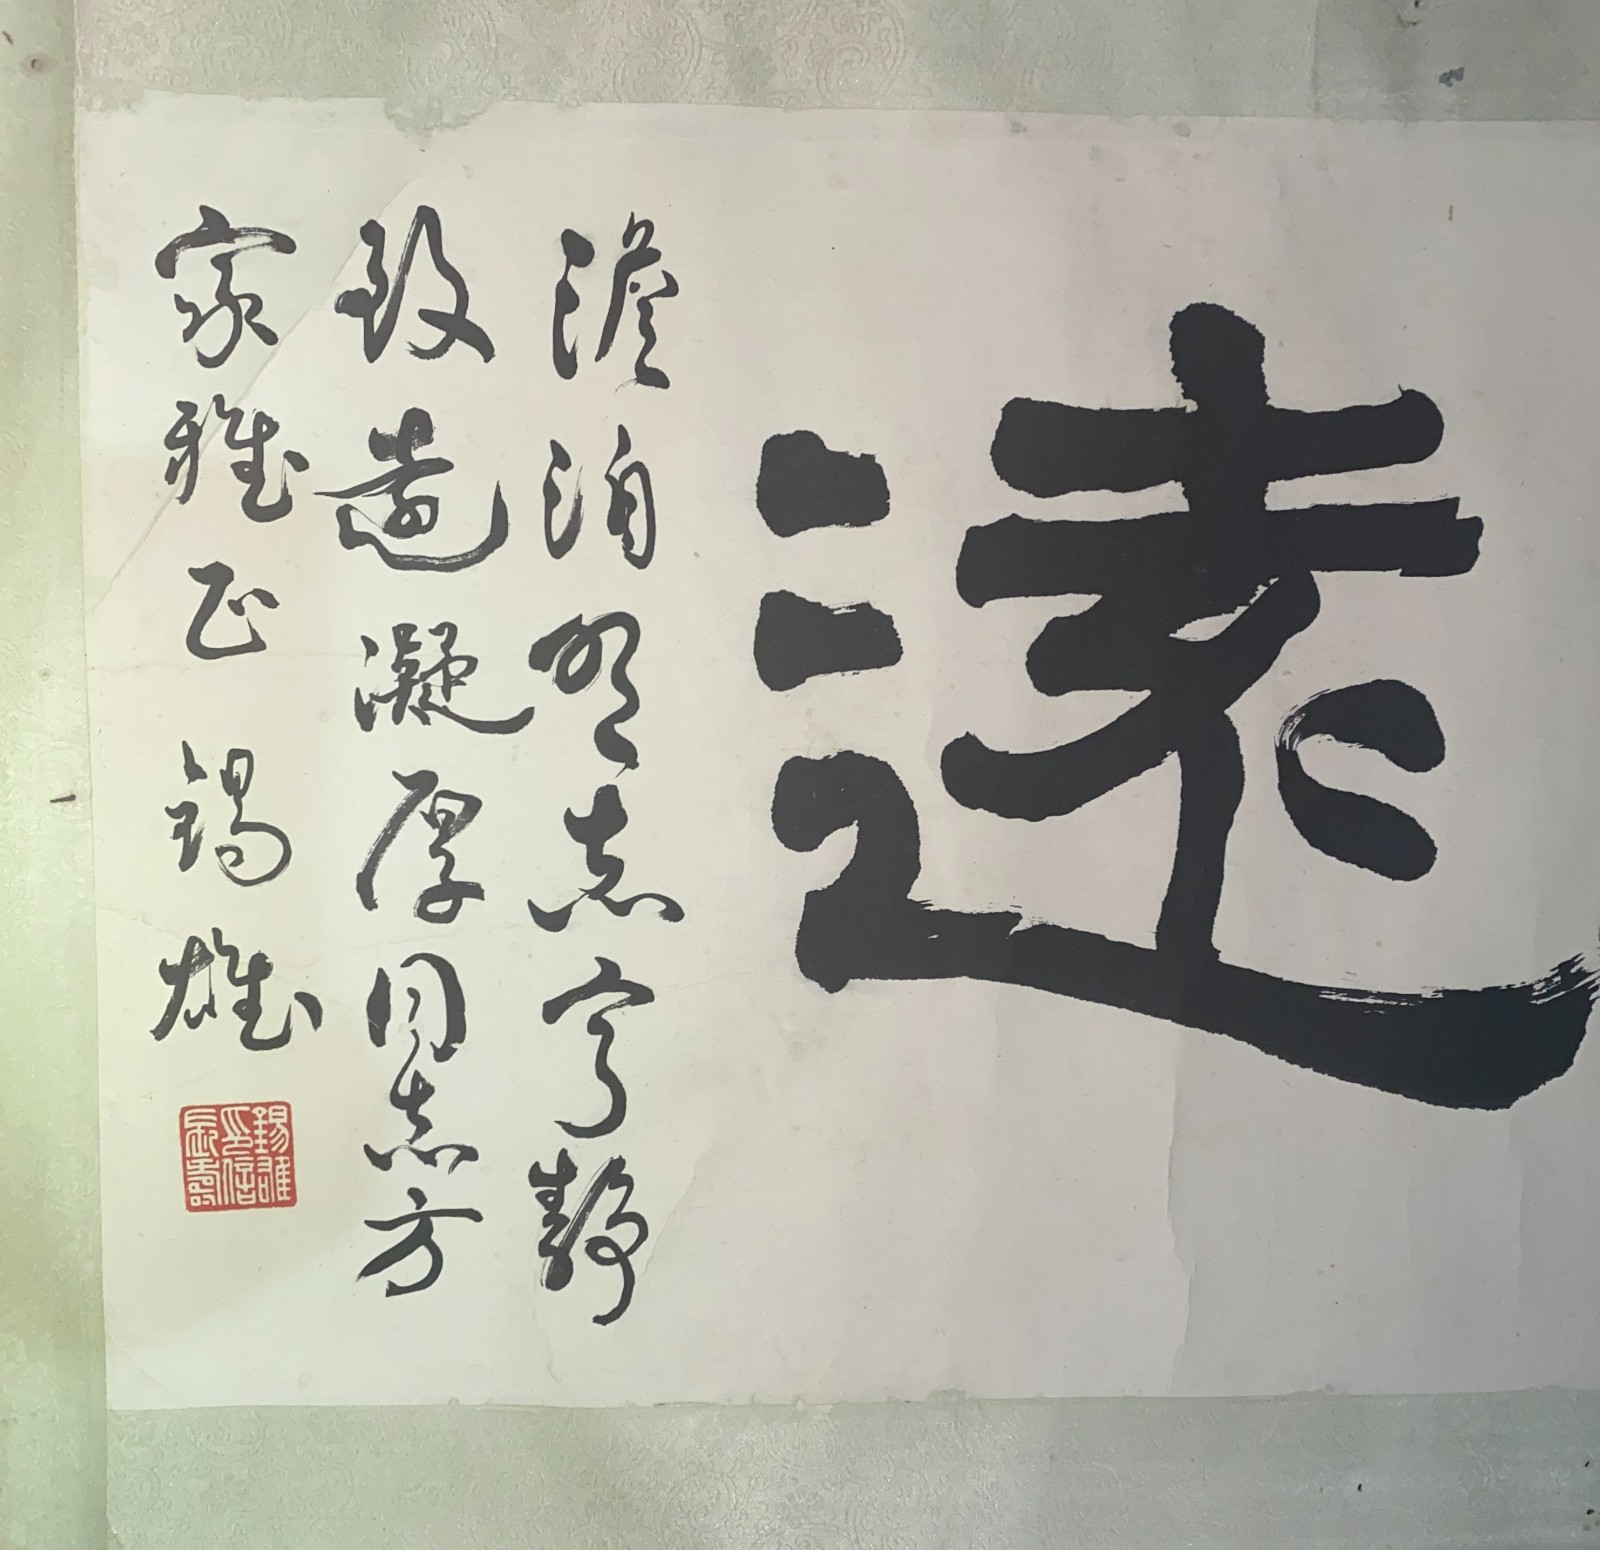 遠
澹泊明志寧靜
致遠凝厚同志方
家雅正 錫雄
錫雄
印信